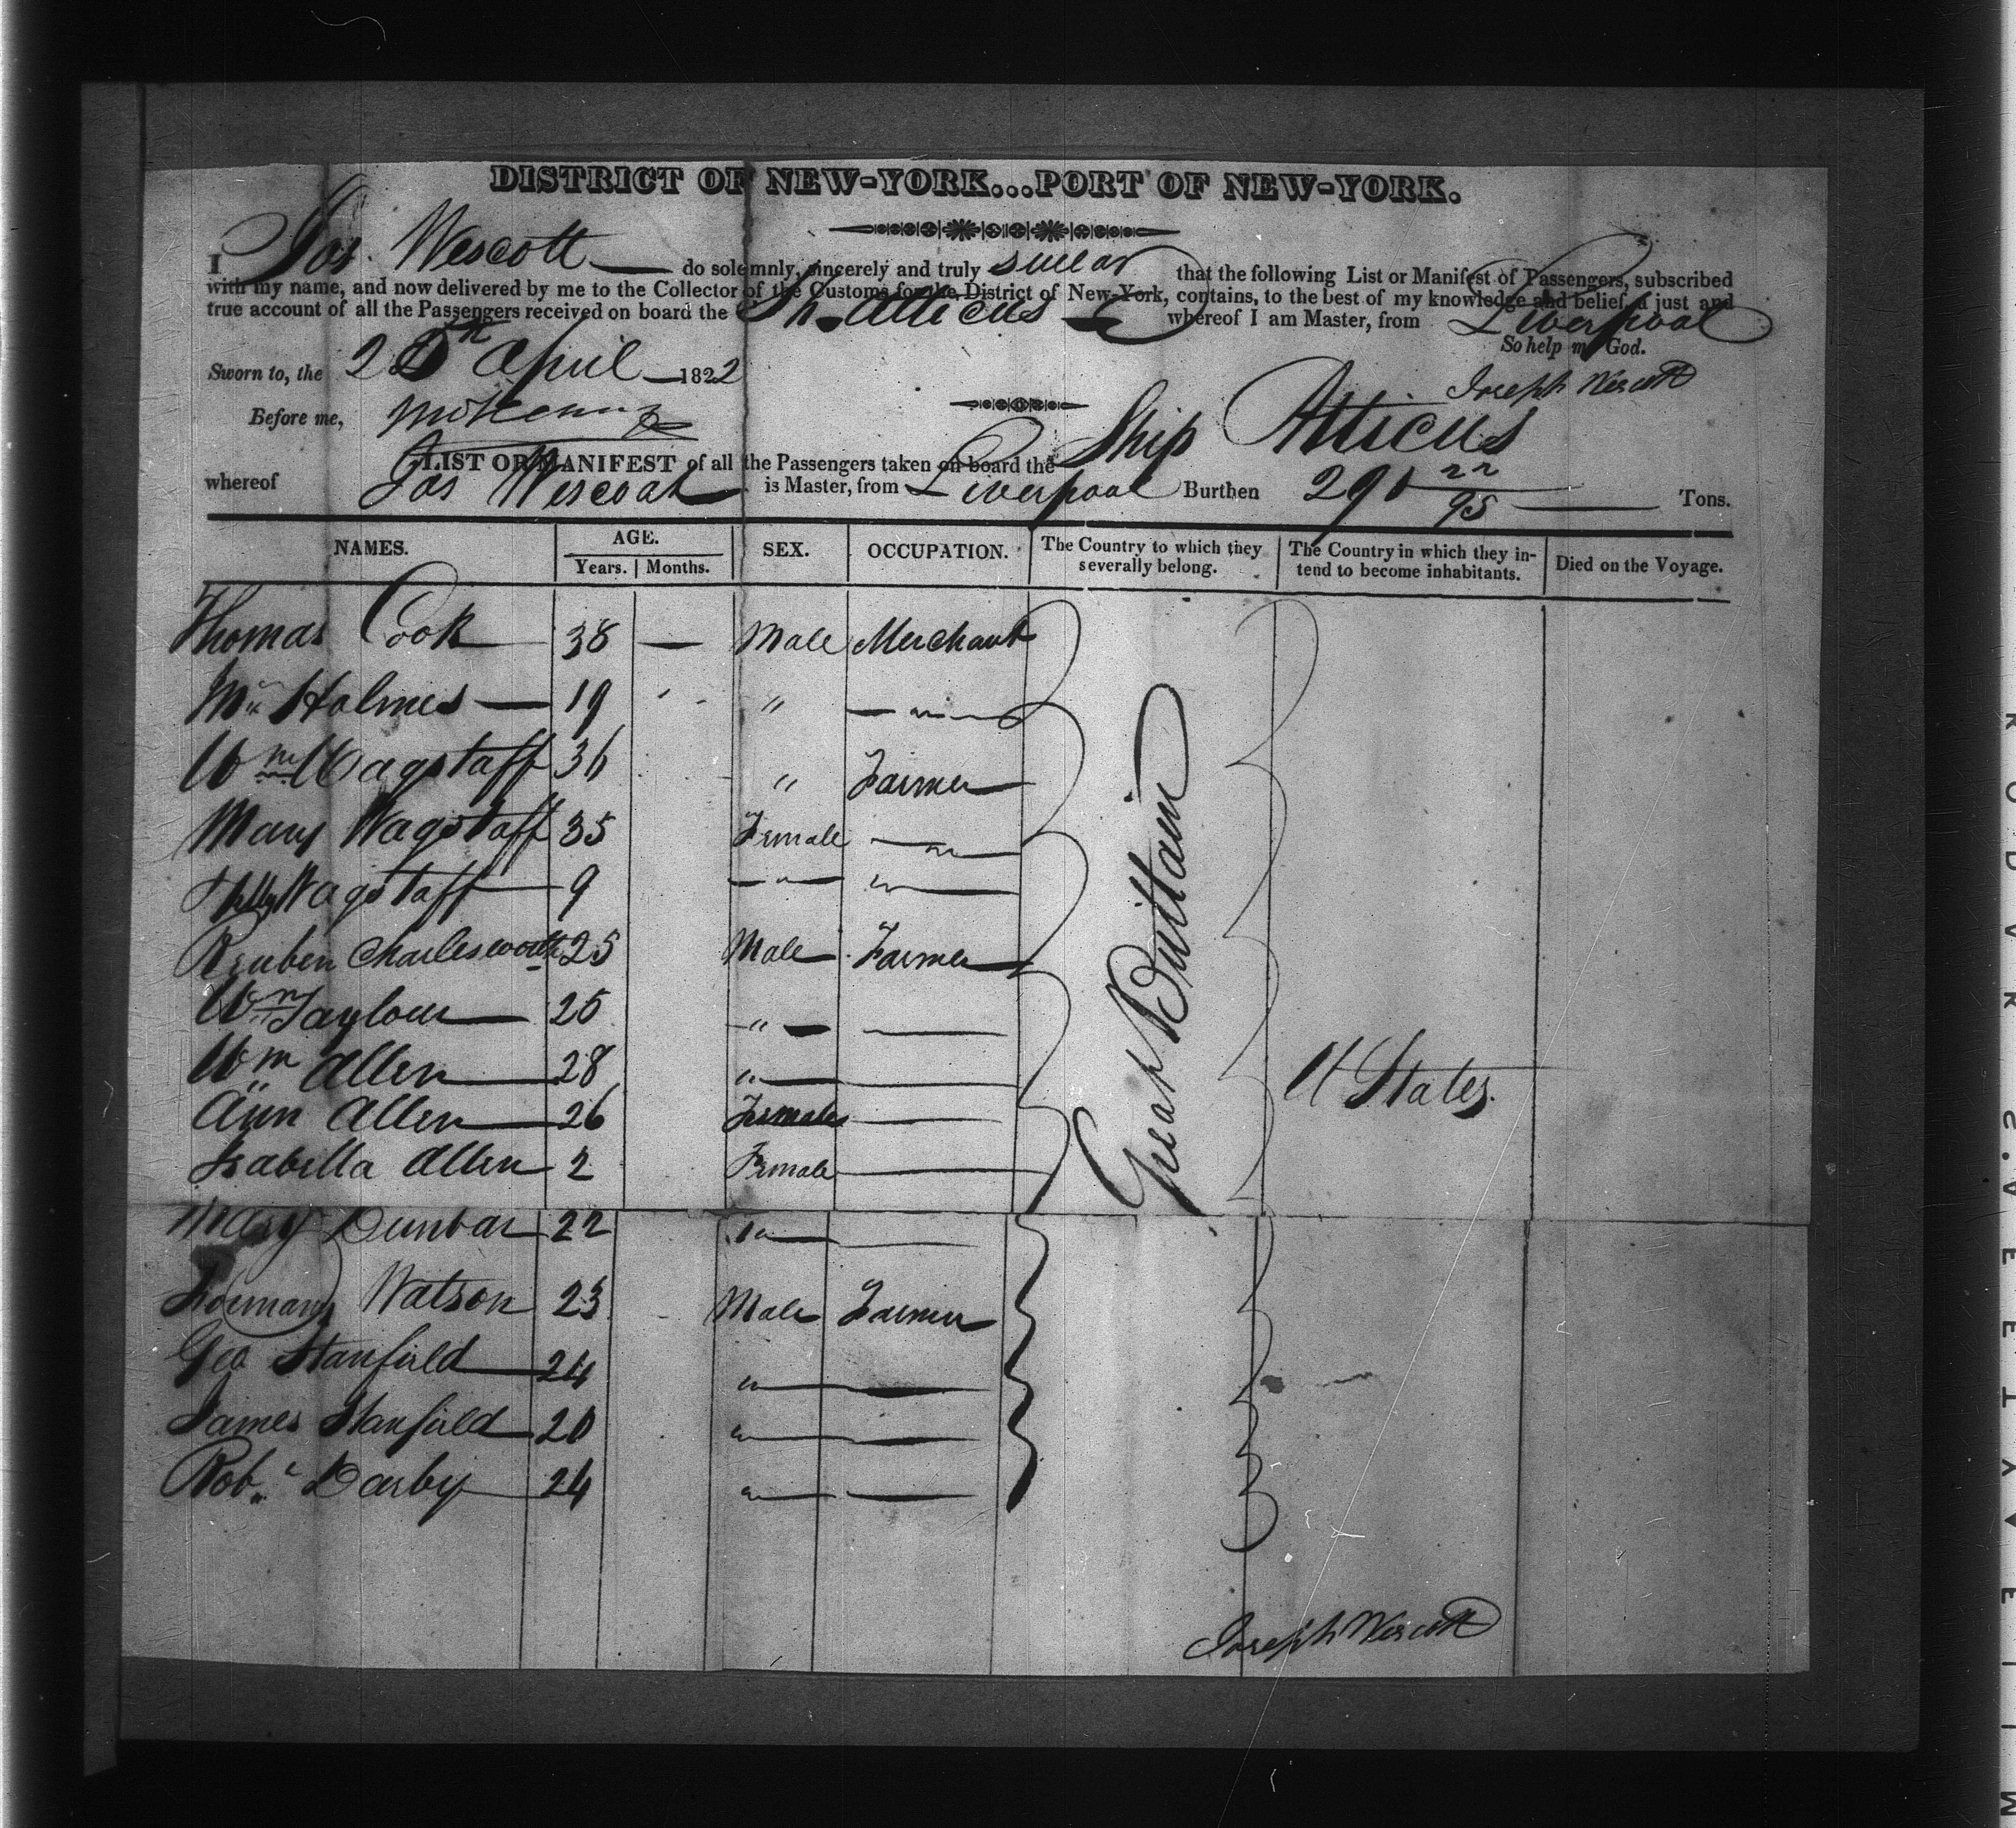 DISTRICT OF NEW-YORK...PORT OF NEW-YORK.
I Jos. Wescott do solemnly, sincerely and truly swear that the following List or Manifest of Passengers, subscribed
with my name, and now delivered by me to the Collector of the Customs for the District of New-York, contains, to the best of my knowledge and belief, a just and
true account of all the Passengers received on board the Sh. Atticus whereof I am Master, from Liverpool
So help me God.
Sworn to, the April 1822
Joseph Wescott
Before me,
LIST OR MANIFEST of all the Passengers taken on board the Ship Atticus
whereof Jos Wescoat is Master, from Liverpool Burthen 290 22/95 Tons.
NAMES. AGE. Years. Months. SEX. OCCUPATION. The Country to which they severally belong. The Country in which they intend to become inhabitants. Died on the Voyage.
Thomas Cook 38 — Male Merchant
Holmes 19 "
Wm Wagstaff 36 " Farmer
Mary Wagstaff 35 Female "
Wagstaff 9 " "
Reuben Charlesworth 25 Male Farmer
Wm Taylour 25 "
Wm Allen 28 "
Ann Allen 26 Female
Isabella Allen 2 Female
Great Brittain
U States.
Mary Dunbar 22 "
Watson 23 Male Farmer
Geo Stanfield 24 "
James Stanfield 20 "
Robt Darby 24 "
Joseph Wescott